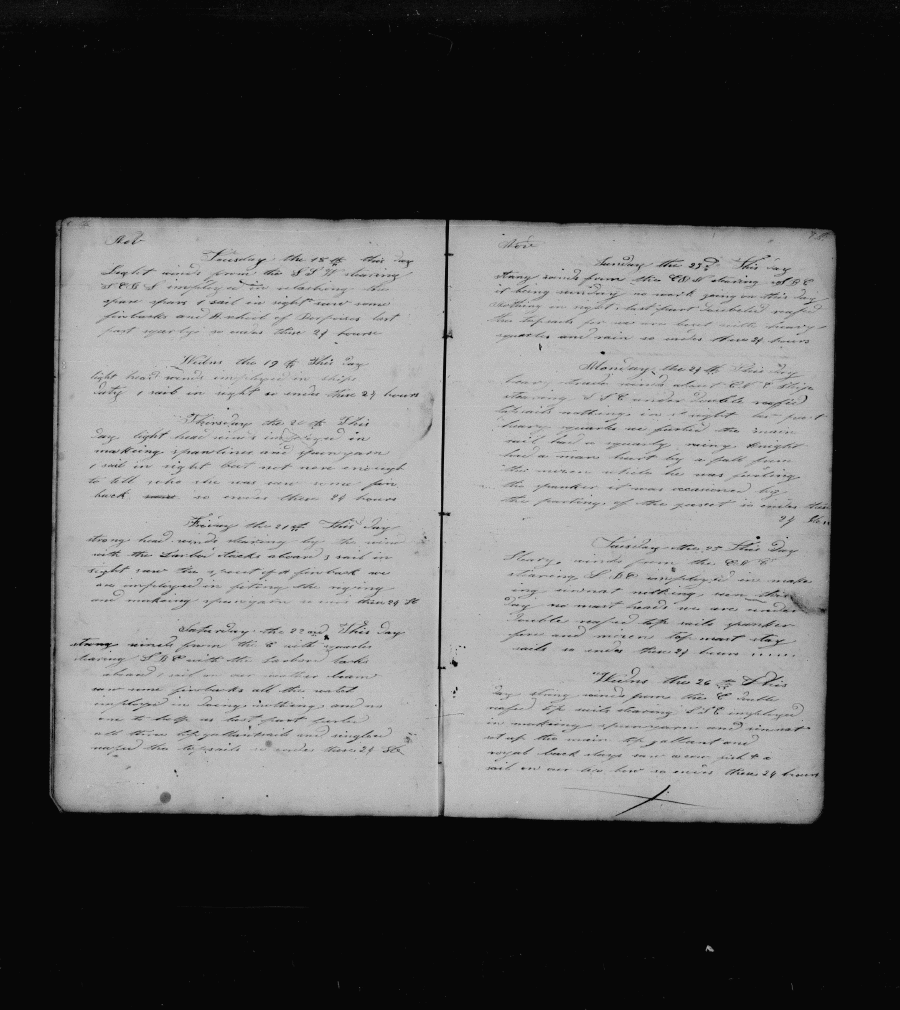 Nov
Tuesday the 18th this day
Light winds from the S S W stearing
S E & S imployed in
spare spars 1 sail in sight saw some
finbacks and a school of Porpoises last
part squaly so endes these 24 hours
Wedns the 19th This day
light head winds imployed in ships
duty 1 sail in sight so endes thise 24 hours
Thirsday the 20th This
day light head winds imployed in
makeing spanlines and spunyarn
1 sail in sight but not near enough
to tell who she was saw some fin
back so endes these 24 hours
Friday the 21st This day
strong head winds stearing by the wind
with the Larbord tacks aboard 1 sail in
sight saw the spout of a finback we
are imployed in fiting the riging
and makeing spunyarn so endes these 24
Saturday the 22nd This day
strong winds from the E with squales
stearing S B E with the larbord tacks
aboard 1 sail on our weather beam
saw some finbacks all the watch
imployed in doing nothing and no
one to help us last part furled
all three topgallantsails and singlereefed
the topsails so endes these 24
Nov
Sunday the 23d This day
strong winds from the stearing S B E
it being sunday no work going on this day
nothing in sight last part doubeled reefed
the topsails for we are beset with heavy
squales and rain so endes these 24 hours
Monday the 24th This day
heavy trade winds about E ship
stearing S S E under double reefed
topsails nothing in sight last part
heavy squales we furled the main
sail had a squaly night
had a man hurt by a fall from
the mizen while he was furling
the spanker it was occasioned by
the parting of the gasset so endes these
24 hours
Tuesday the 25 This day
Heavy winds from the
stearing S B E imployed in make
ing nothing seen this
day no mast heads we are under
double reefed top sails spanker
fore and mizen top mast stay
sails so endes these 24 hours
Wedns the 26th This
day strong winds from the E double
reefed top sails stearing S S E imployed
in makeing spunyarn and
set up the main top gallant and
royal back stays
sail on our lee bow so endes these 24 hours